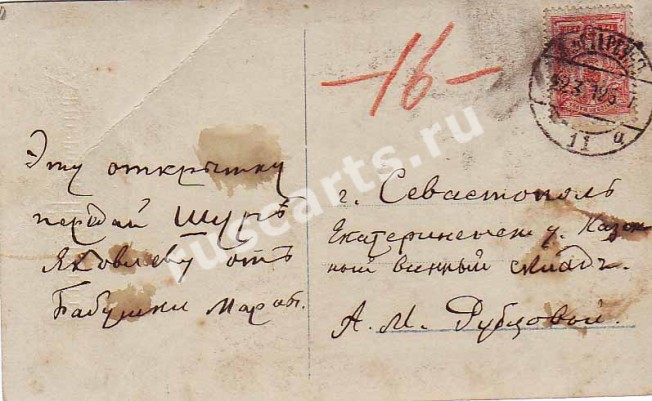 -16-
Эту открытку
передай Шурѣ
Яковлеву отъ
Бабушки Мары.
г. Севастополь
Екатерининск ул. Казен
ный винный складъ.
А. М. Рубцовой.
11 ч
ruscarts.ru